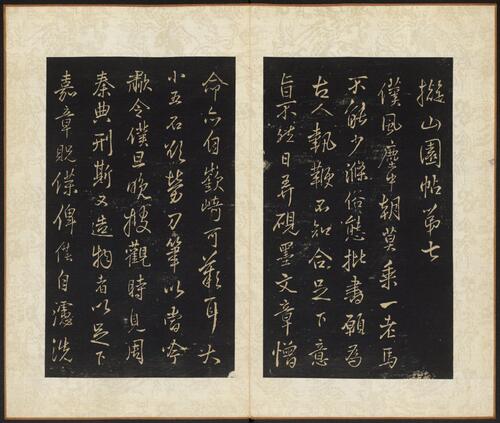 擬山園帖第七
僕風塵中朝莫乘一老馬
不能少滌俗態批書願為
古人執鞭不知合足下意
旨不然日弄硯墨文章憎
命亦自嶔崎可歎耳大
小五石欲勞刀筆以當呤
歗令僕旦晚捜觀時見周
秦典刑斯又造物者以足下
嘉章貺僕俾僕自濾洗